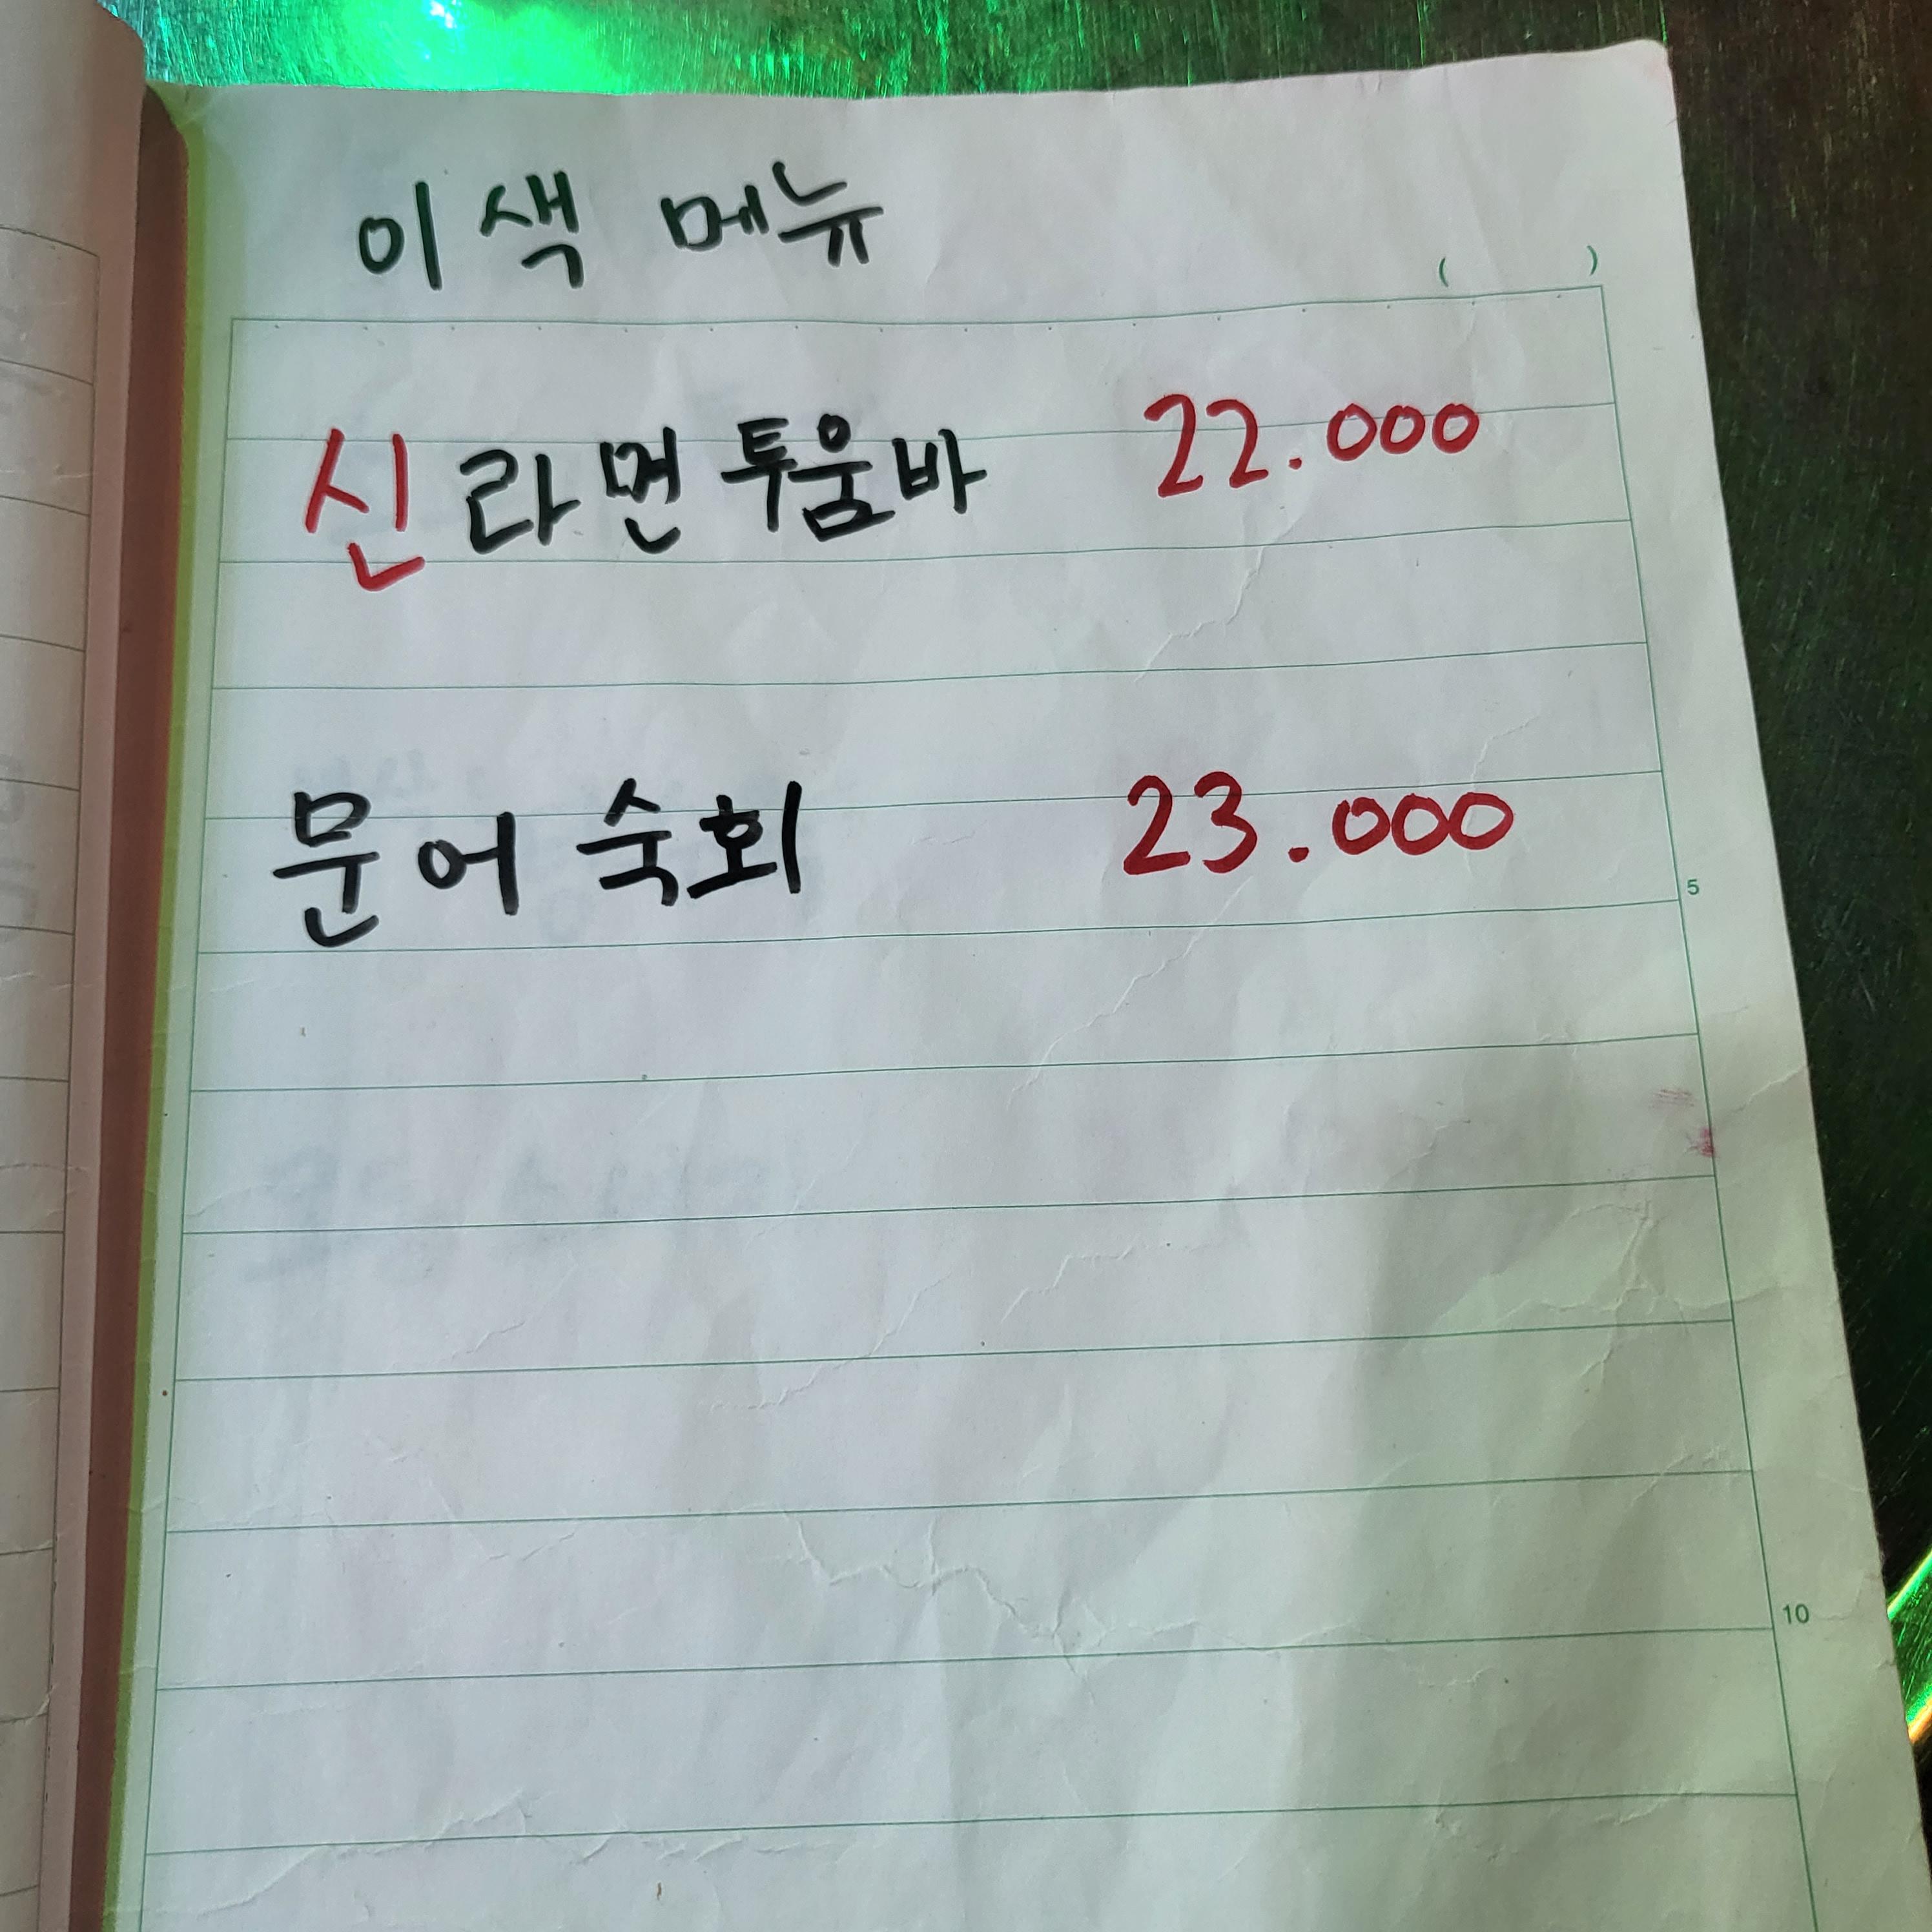 이색 메뉴
( )
신라면 투움바 22.000
문어 숙회 23.000
5
10